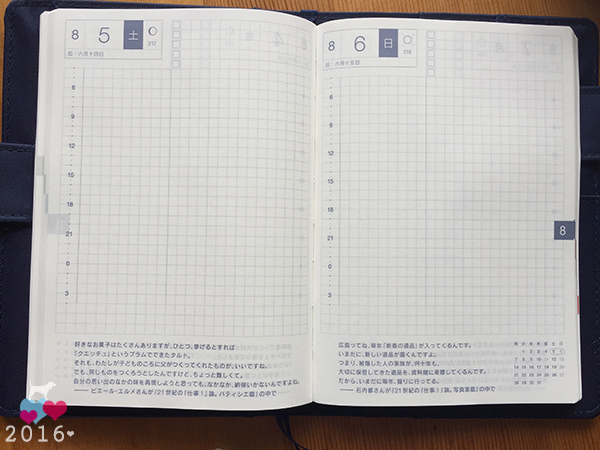 8 5 土 217
旧：六月十四日
6
9
12
15
18
21
0
3
好きなお菓子はたくさんありますが、ひとつ、挙げるとすれば
「クエッチェ」というプラムでできたタルト。
それも、わたしが子どものころに父がつくってくれたものが、いいですね。
でも、同じものをつくろうとしたんですけど、ちょっと難しくて。
自分の思い出のなかの味を再現しようと思っても、なかなか、納得いかないんですよね。
―― ピエール・エルメさんが『21世紀の「仕事！」論。パティシエ篇』の中で
8 6 日 218
旧：六月十五日
6
9
12
15
18
21
0
3
8
広島ってね、毎年「新着の遺品」が入ってくるんです。
いまだに、新しい遺品が届くんですよ。
つまり、被爆した人の家族が、何十年も、
大切に保管してきた遺品を、資料館に寄贈してくるんです。
だから、いまだに毎年、撮りに行ってる。
―― 石内都さんが『21世紀の「仕事！」論。写真家篇』の中で
月 火 水 木 金 土 日
1 2 3 4 5 6
7 8 9 10 11 12 13
14 15 16 17 18 19 20
21 22 23 24 25 26 27
28 29 30 31
2016